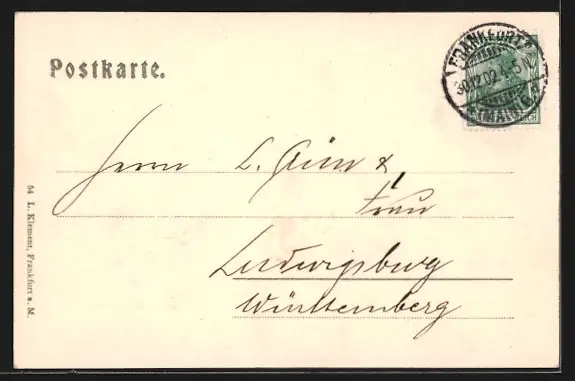 Postkarte.
FRANKFURT
30.12.02.4-5N.
(MAIN)
Herrn L.
&
Frau
Ludwigsburg
Württemberg
54 L. Klement, Frankfurt a. M.